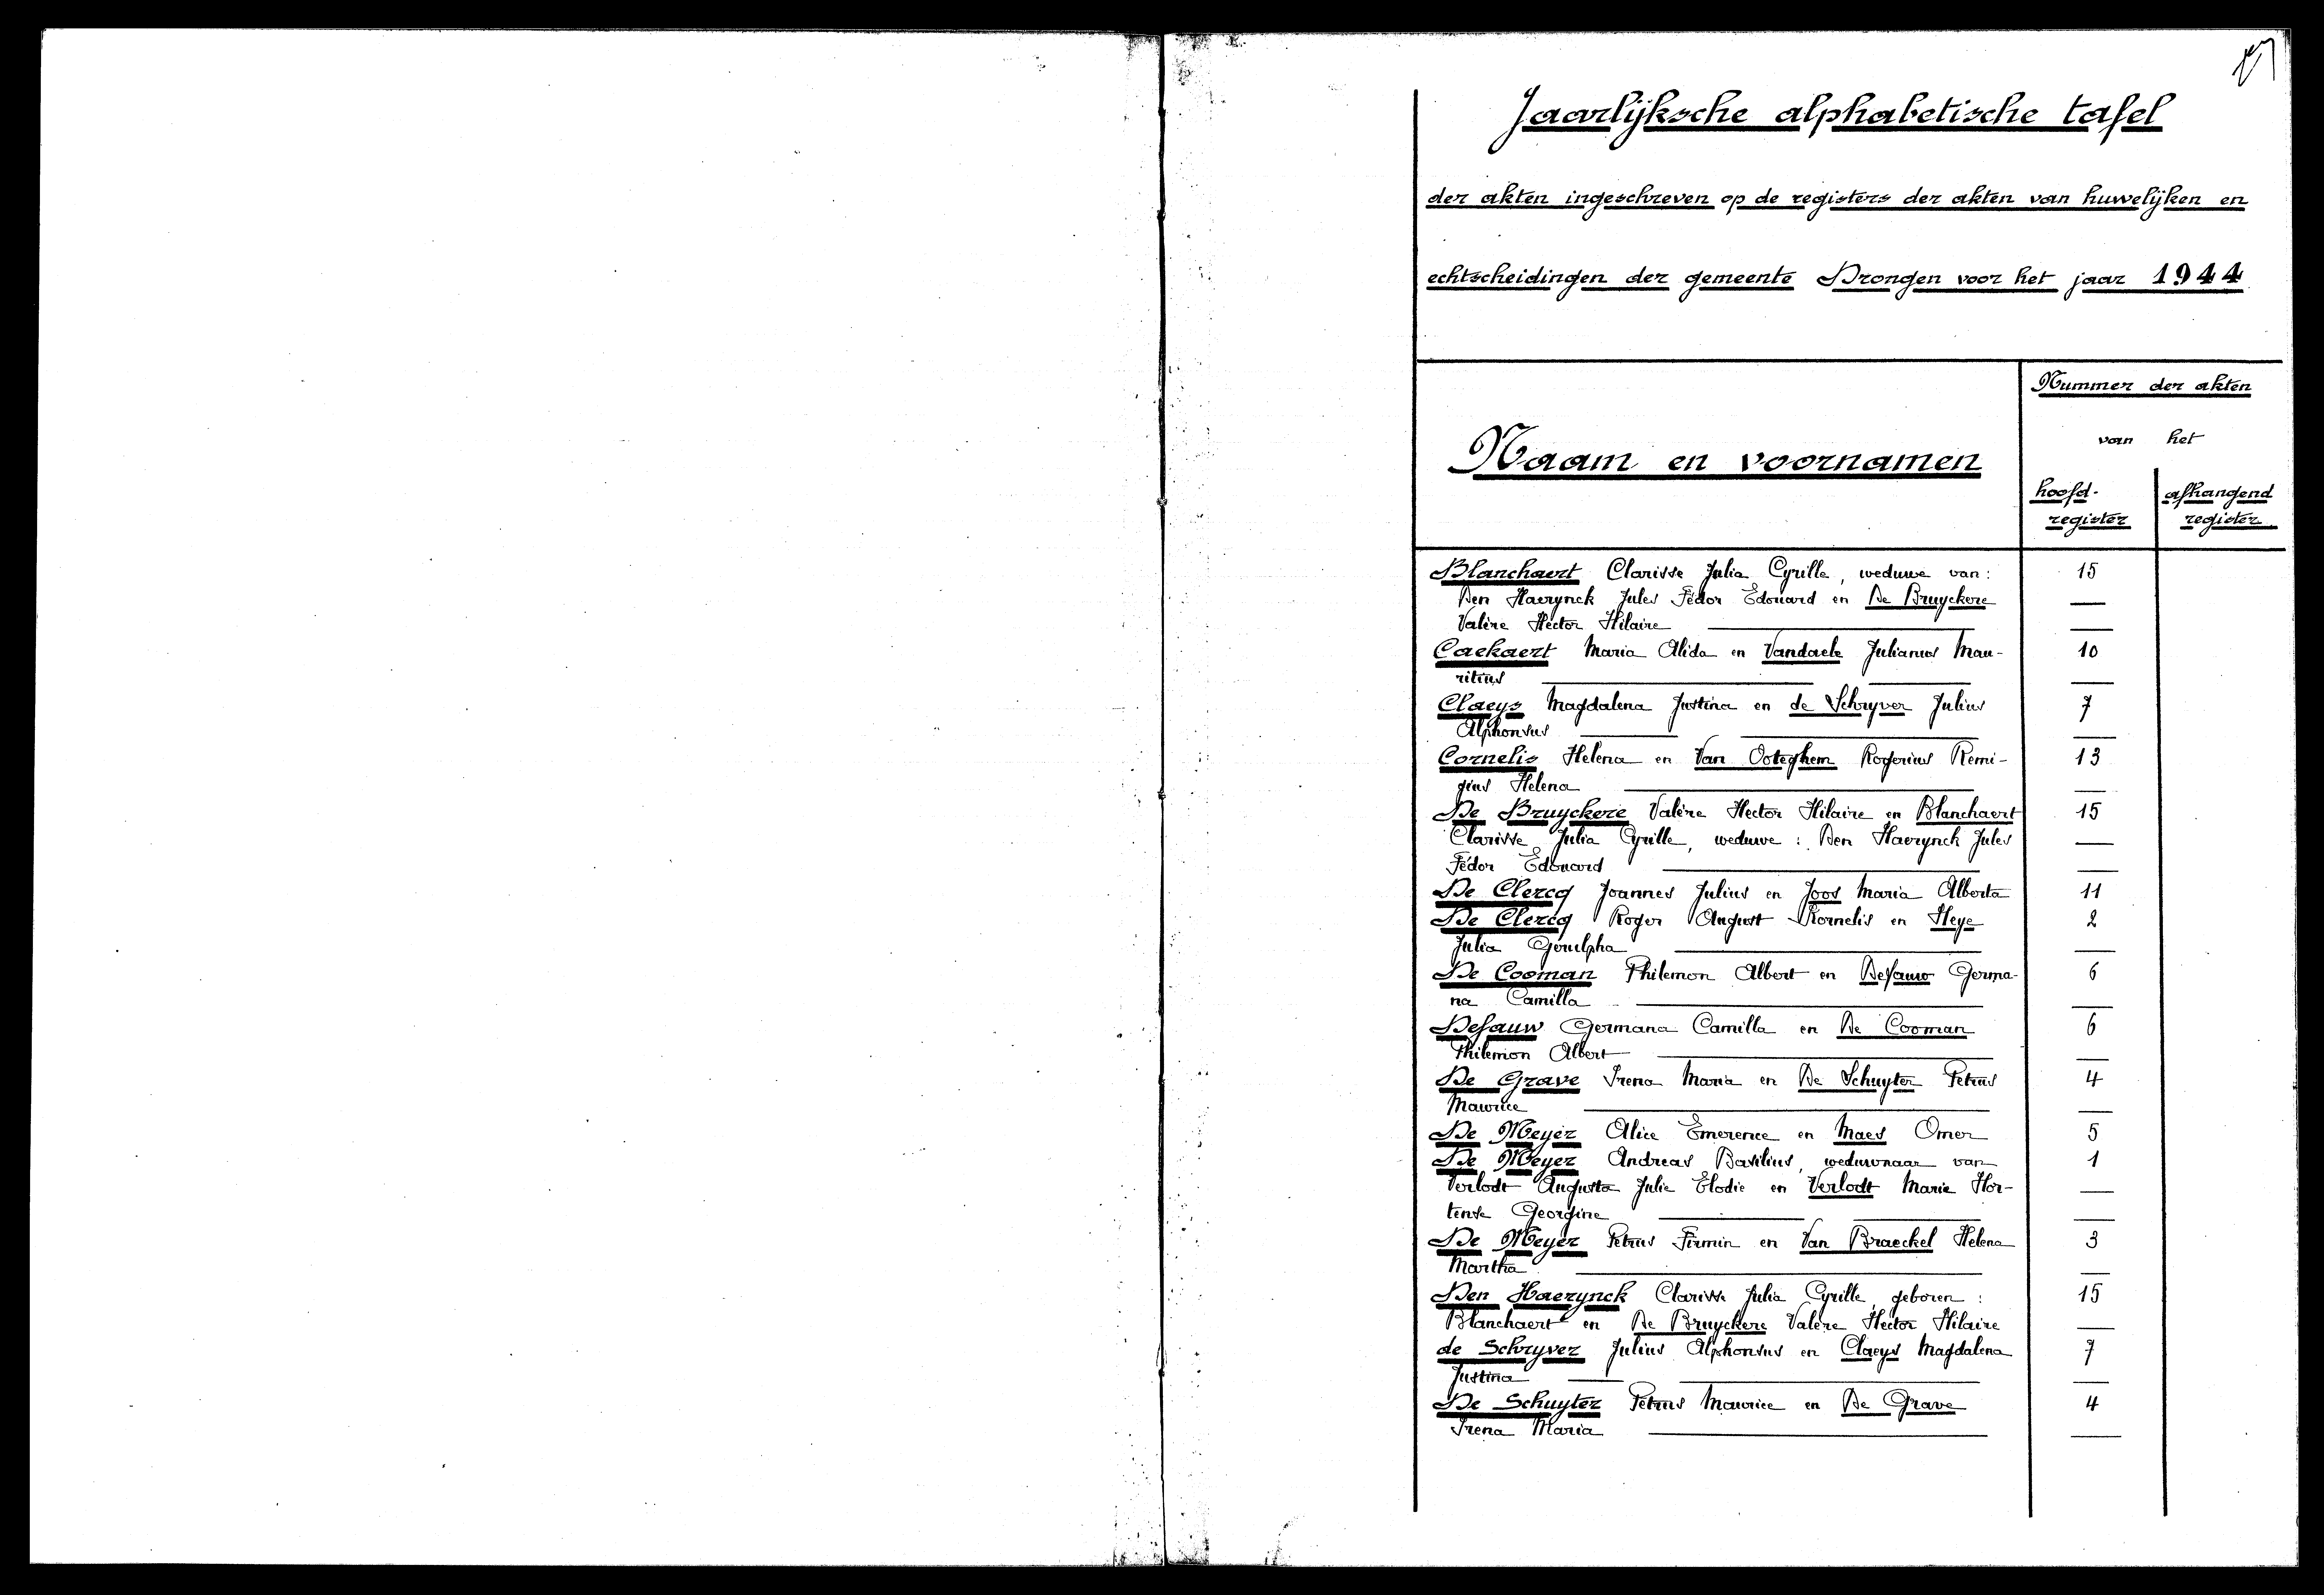 Jaarlijksche alphabetische tafel
der akten ingeschreven op de registers der akten van huwelijken en
echtscheidingen der gemeente Drongen voor het jaar 1944
Nummer der akten
van het
Naam en voornamen
hoofd- afhangend
register register
Blanchaert Clarisse Julia Cyrille, weduwe van: 15
Den Haerynck Jules Fédor Edouard en De Bruyckere —
Valère Hector Hilaire —
Caekaert Maria Alida en Vandaele Julianus Mau- 10
ritius —
Claeys Magdalena Justina en de Schryver Julius 7
Alphonsus —
Cornelis Helena en Van Ooteghem Rogerius Remi- 13
gius Helena —
De Bruyckere Valère Hector Hilaire en Blanchaert 15
Clarisse Julia Cyrille, weduwe : Den Haerynck Jules —
Fédor Edouard —
De Clercq Joannes Julius en Joos Maria Alberta 11
De Clercq Roger August Kornelis en Heye 2
Julia —
De Cooman Philemon Albert en Defauw Germa- 6
na Camilla —
Defauw Germana Camilla en De Cooman 6
Philemon Albert —
De Grave Irena Maria en De Schuyter Petrus 4
Maurice —
De Meyer Alice Emerence en Maes Omer 5
De Meyer Andreas Basilius, weduwnaar van 1
Verlodt Augusta Julie Elodie en Verlodt Marie Hor- —
tense Georgine —
De Meyer Petrus Firmin en Van Braeckel Helena 3
Martha —
Den Haerynck Clarisse Julia Cyrille, geboren : 15
Blanchaert en De Bruyckere Valère Hector Hilaire —
de Schryver Julius Alphonsus en Claeys Magdalena 7
Justina —
De Schuyter Petrus Maurice en De Grave 4
Irena Maria —